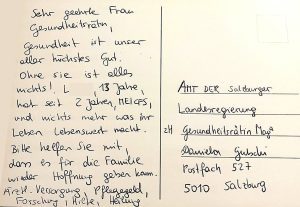 Sehr geehrte Frau
Gesundheitsrätin,
Gesundheit ist unser
aller höchstes Gut.
Ohne sie ist alles
nichts! L , 13 Jahre,
hat seit 2 Jahren, ME/CFS,
und nichts mehr was ihr
Leben Lebenswert macht.
Bitte helfen Sie mit,
dass es für die Familie
wieder Hoffnung geben kann.
Ärztl. Versorgung, Pflegegeld,
Forschung, Hilfe, Heilung
AMT DER Salzburger
Landesregierung
zH Gesundheitsrätin Mag.a
Daniela Gutschi
Postfach 527
5010 Salzburg